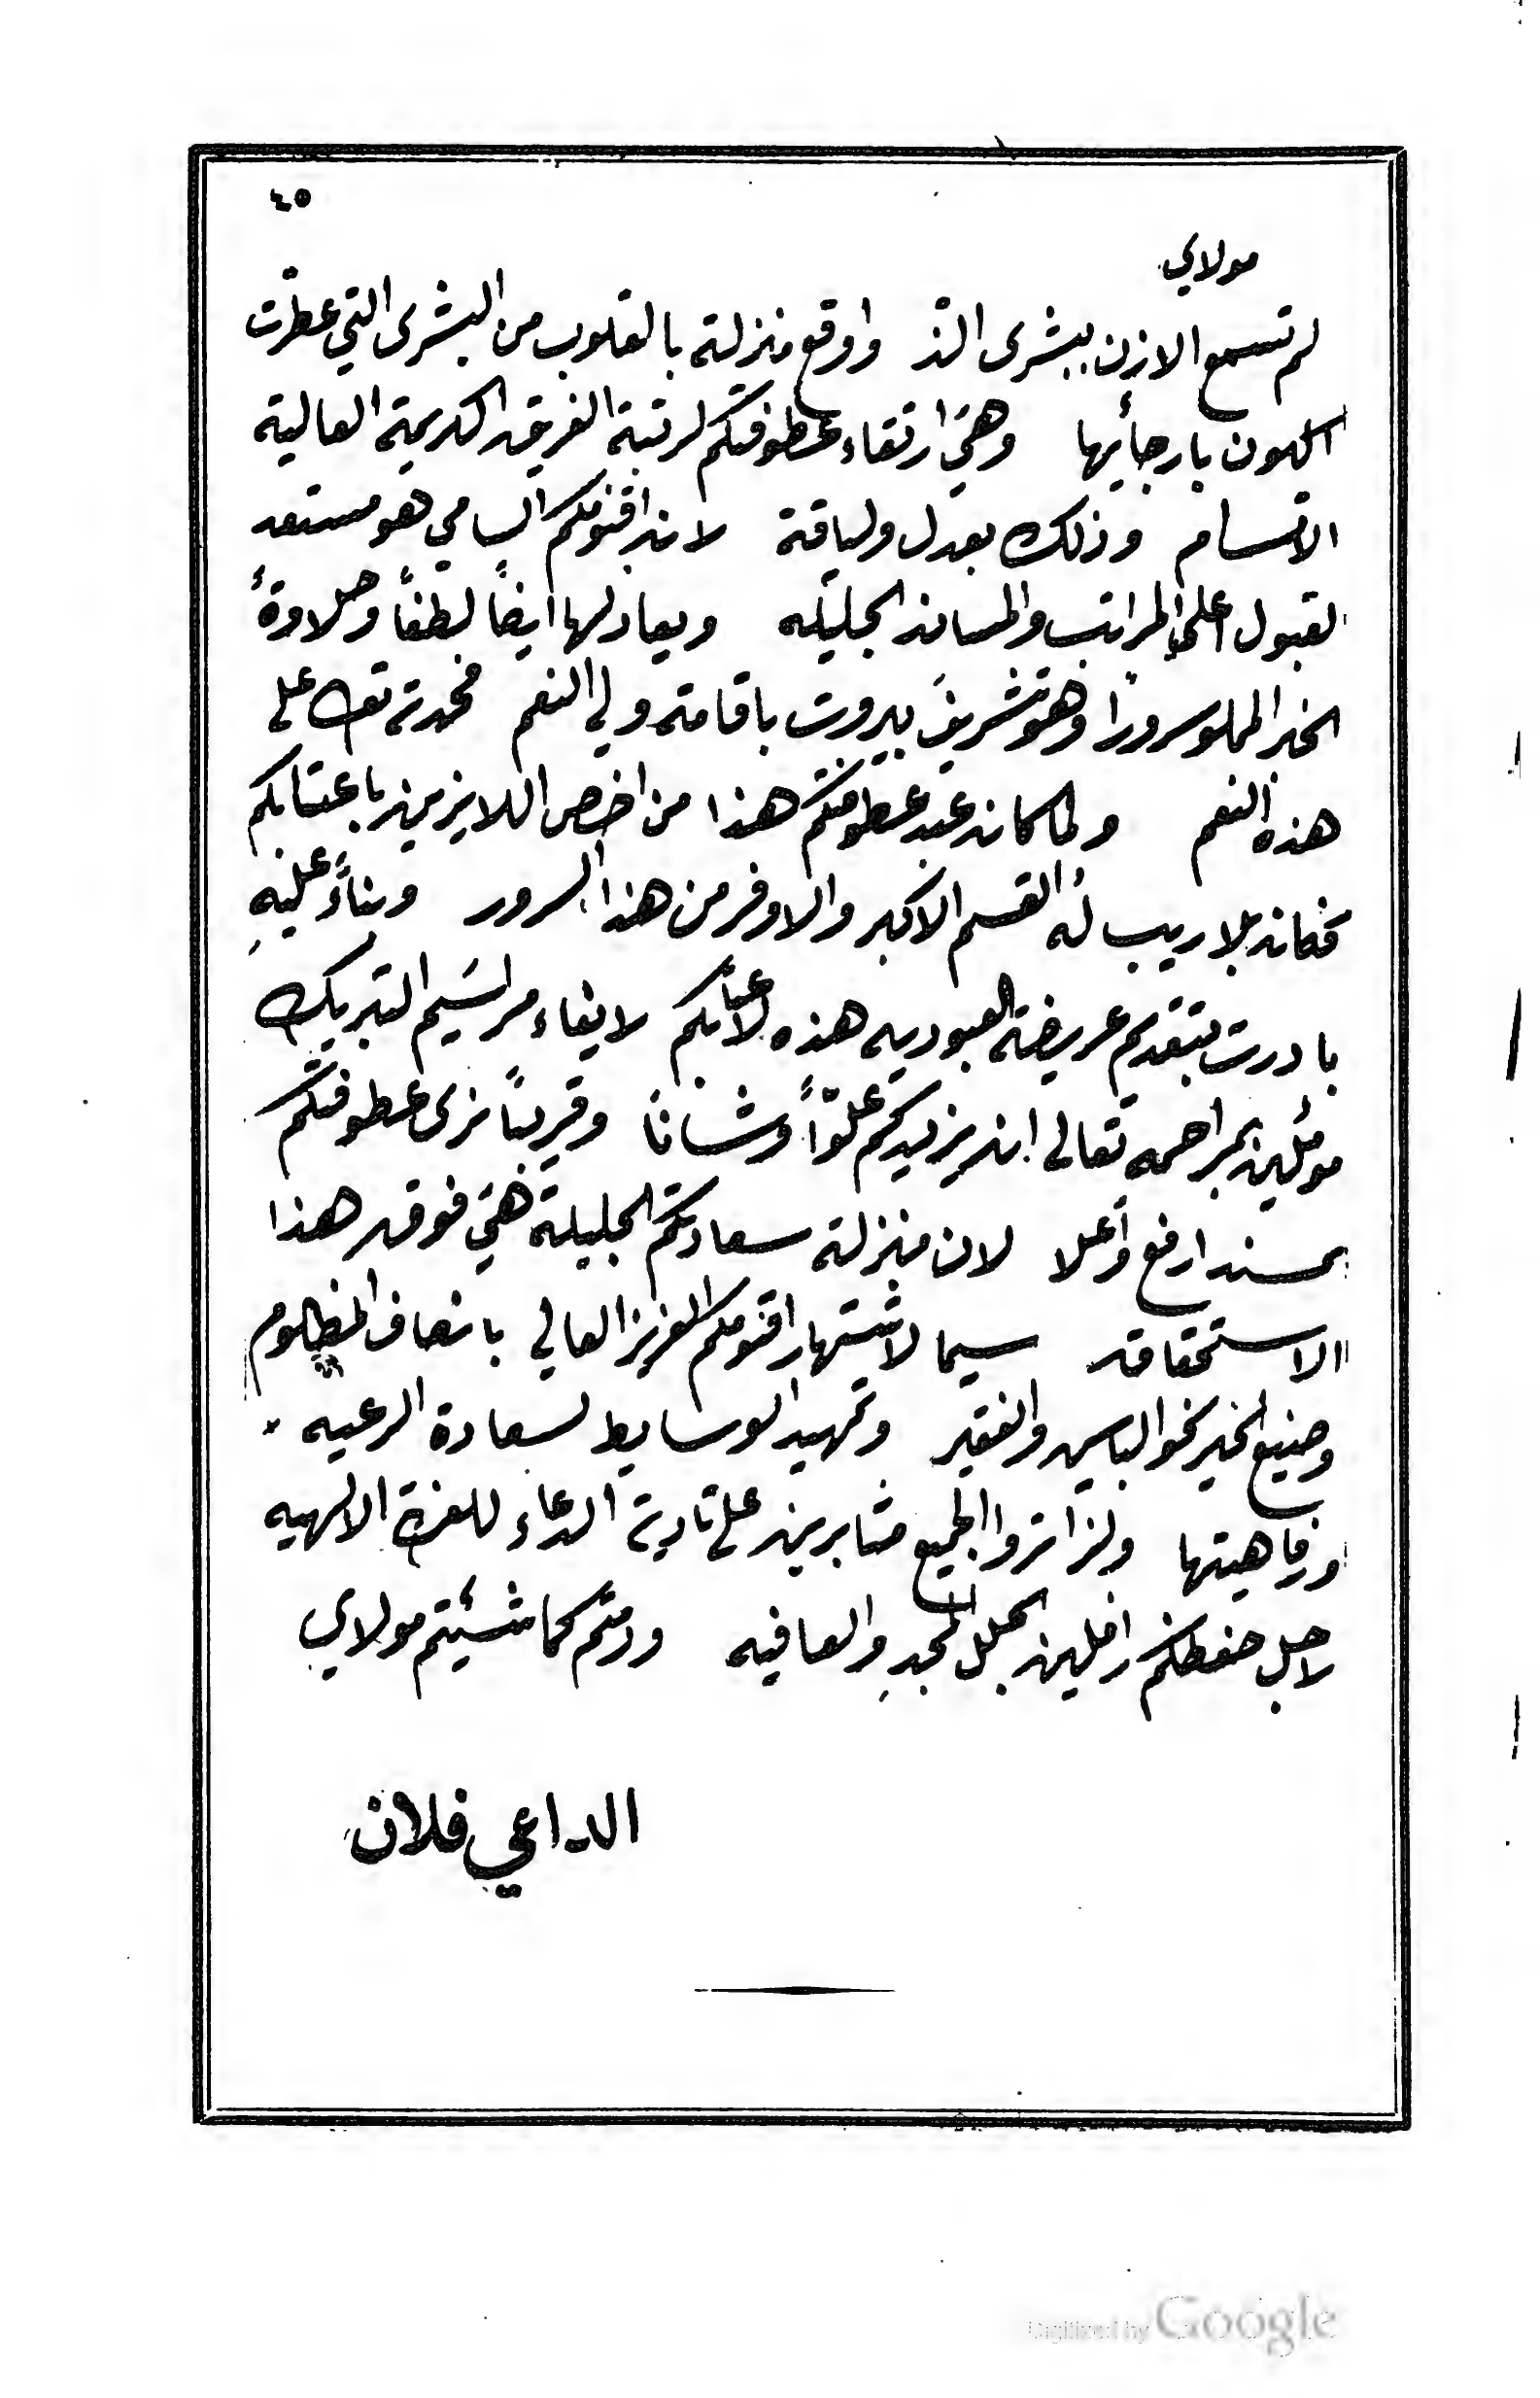 ٤٥
مولاي
لم تسمع الاذن ببشرى الذّ واوقع منزلة بالقلوب من البشرى التي عطّرت
الكون بارجائها وهي ارتقاء عطوفتكم لرتبة الفريق الكريمة العالية
الاقسام وذلك بعدل ولياقة لان اقنومكم السامي هو مستعد
لقبول اعلى المراتب والمساند الجليله ويعادلها ايضاً لطفاً وحلاوةً
الخبر المملو سروراً وهو تشريف بيروت باقامة ولي النعم فحمدته تعالى على
هذه النعم ولما كان عبد عطوفتكم هذا من اخص اللايذين باعتابكم
فكان بلا ريب لهُ القسم الاكبر والاوفر من هذا السرور وبناءً عليهِ
بادرت بتقديم عريضة العبوديه هذه لاعتابكم لايفاء مراسيم التبريك
مؤملين بمراحمه تعالى ان يزيدكم علوّاً وشاناً وقريباً نرى عطوفتكم
بمسند ارفع وأعلا لان منزلة سعادتكم الجليلة هي فوق هذا
الاستحقاق سيما لاشتهار اقنومكم العزيز العالي بانصاف المظلوم
وصنيع الخير نحو البايس والفقير وتمهيد الوسايط لسعادة الرعيه
ورفاهيتها ولن تزالوا الجميع مثابرين على تادية الدعاء للعزة الالهيه
لاجل حفظكم رافلين بحلل المجدِ والعافيه ودمتم كما شئيتم مولاي
الداعي فلان
Digitized by Google